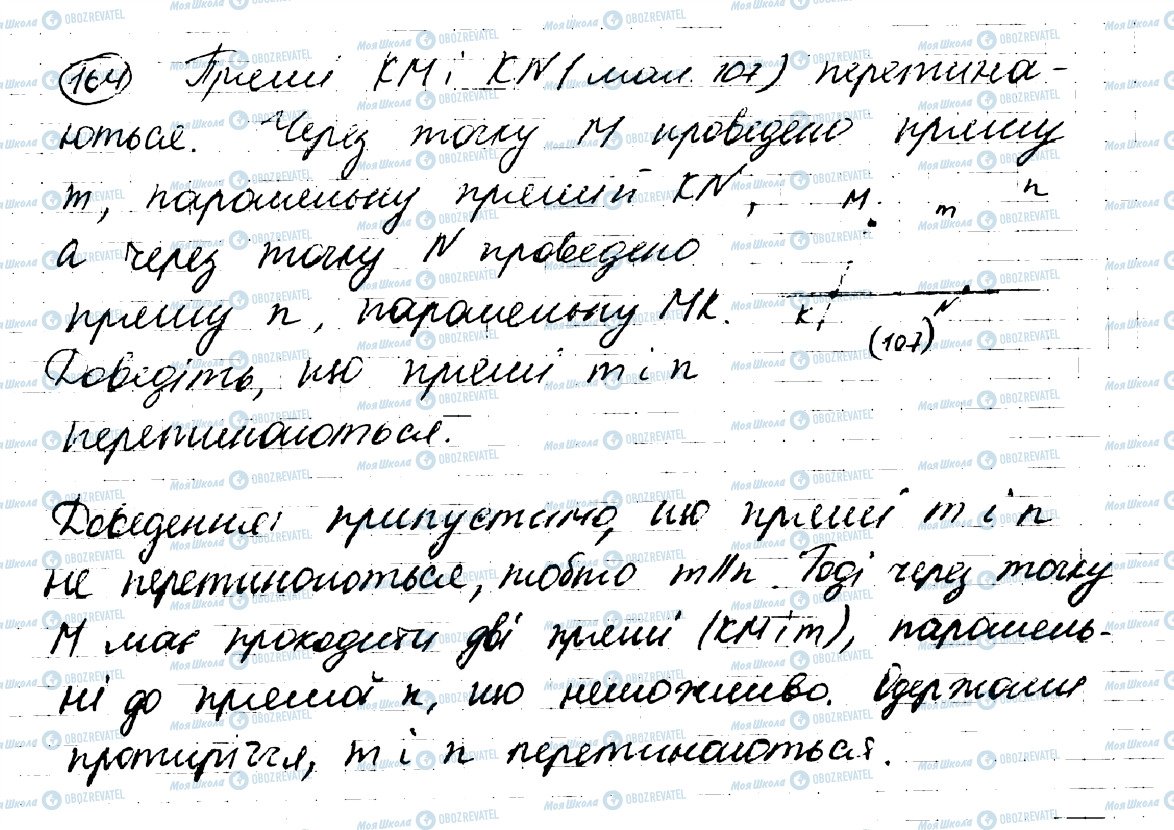 164 Прямі KM і KN (мал. 107) перетина-
ються. Через точку M проведено пряму
m, паралельну прямій KN,
M m n
а через точку N проведено
пряму n, паралельну MK.
K N
(107)
Доведіть, що прямі m і n
перетинаються.
Доведення: припустимо, що прямі m і n
не перетинаються, тобто m||n. Тоді через точку
M має проходити дві прямі (KM і m), паралель-
ні до прямой n, що неможливо. Одержали
протиріччя, m і n перетинаються.